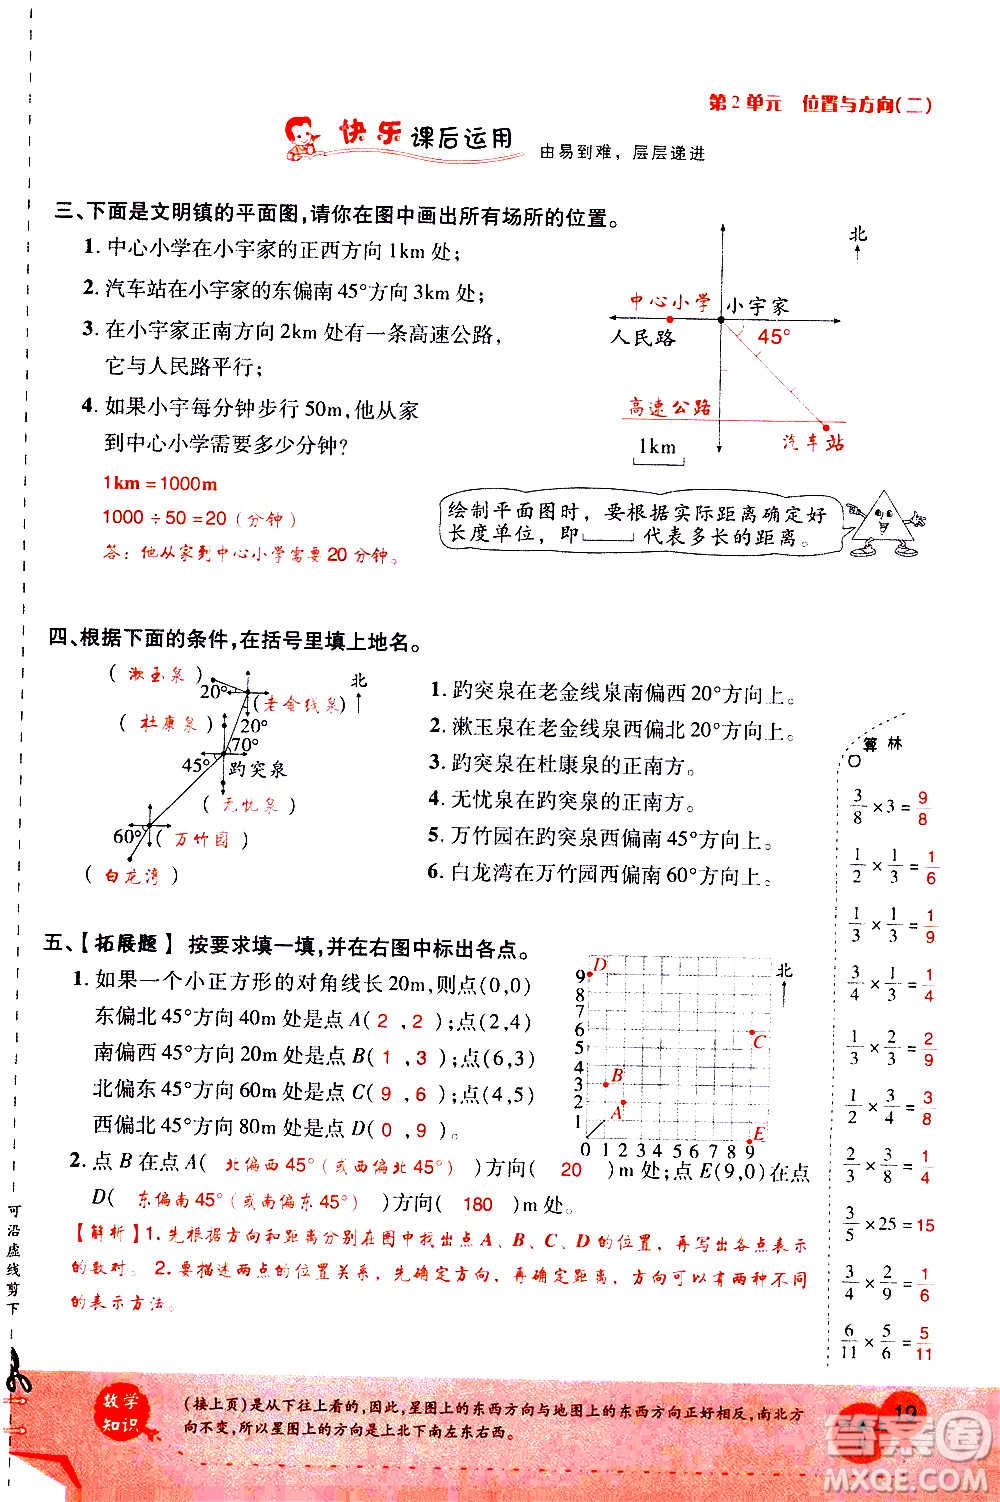 第2单元 位置与方向(二)
快乐课后运用 由易到难，层层递进
三、下面是文明镇的平面图,请你在图中画出所有场所的位置。
1. 中心小学在小宇家的正西方向1km处;
2. 汽车站在小宇家的东偏南45°方向3km处;
3. 在小宇家正南方向2km处有一条高速公路,
它与人民路平行;
4. 如果小宇每分钟步行50m,他从家
到中心小学需要多少分钟?
1km=1000m
1000÷50=20(分钟)
答:他从家到中心小学需要20分钟。
北
中心小学 小宇家
人民路 45°
高速公路
汽车站
1km
绘制平面图时，要根据实际距离确定好
长度单位，即 代表多长的距离。
四、根据下面的条件,在括号里填上地名。
(漱玉泉) 北
20°
(老金线泉)
(杜康泉) 20°
70°
45° 趵突泉
(无忧泉)
60° (万竹园)
(白龙湾)
1. 趵突泉在老金线泉南偏西20°方向上。
2. 漱玉泉在老金线泉西偏北20°方向上。
3. 趵突泉在杜康泉的正南方。
4. 无忧泉在趵突泉的正南方。
5. 万竹园在趵突泉西偏南45°方向上。
6. 白龙湾在万竹园西偏南60°方向上。
五、【拓展题】 按要求填一填,并在右图中标出各点。
1. 如果一个小正方形的对角线长20m,则点(0,0)
东偏北45°方向40m处是点A(2,2);点(2,4)
南偏西45°方向20m处是点B(1,3);点(6,3)
北偏东45°方向60m处是点C(9,6);点(4,5)
西偏北45°方向80m处是点D(0,9)。
9 D 北
8
7
6 C
5
4
3 B
2 A
1
0 1 2 3 4 5 6 7 8 9 E
2. 点B在点A(北偏西45°(或西偏北45°))方向(20)m处;点E(9,0)在点
D(东偏南45°(或南偏东45°))方向(180)m处。
【解析】1.先根据方向和距离分别在图中找出点A、B、C、D的位置，再写出各点表示
的数对。2.要描述两点的位置关系，先确定方向，再确定距离，方向可以有两种不同
的表示方法。
算林
3/8×3=9/8
1/2×1/3=1/6
1/3×1/3=1/9
3/4×1/3=1/4
1/3×2/3=2/9
1/2×3/4=3/8
2/3×3/8=1/4
3/5×25=15
3/4×2/9=1/6
6/11×5/6=5/11
可沿虚线剪下
数学知识
(接上页)是从下往上看的,因此,星图上的东西方向与地图上的东西方向正好相反,南北方
向不变,所以星图上的方向是上北下南左东右西。
19
答案圈
MXQE.COM